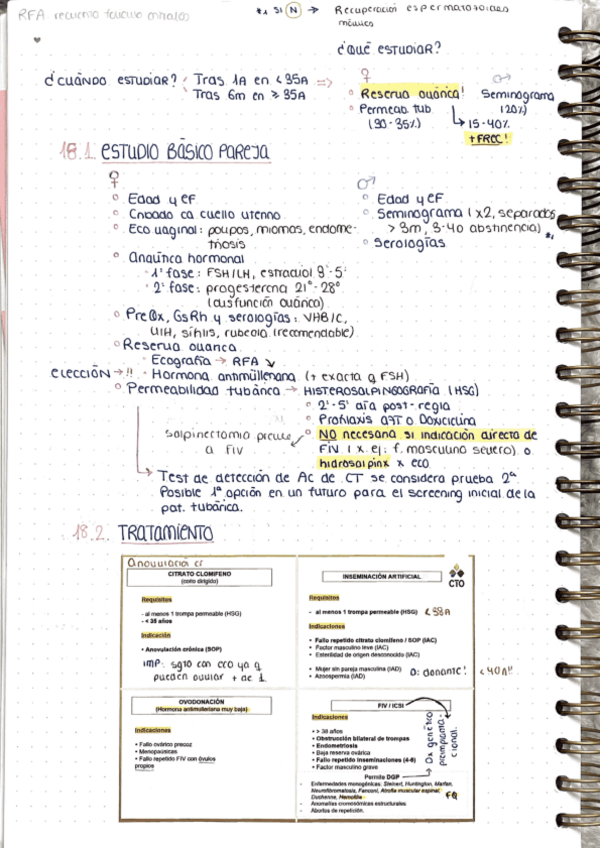 RFA recuento folículo antrales
*1 SI (N) → Recuperación espermatozoides móviles
¿QUÉ ESTUDIAR?
¿CUÁNDO ESTUDIAR? Tras 1A en < 35A ⇒
Tras 6m en ≥ 35A
♀
Reserva ovárica!
Permeab tub
(30-35%)
↳ 15-40%
+ FREC!
♂
Seminograma
(20%)
18.1. ESTUDIO BÁSICO PAREJA
♀
Edad y EF
Cribado ca cuello uterino
Eco vaginal: pólipos, miomas, endome-
triosis
Analítica hormonal
1ª fase: FSH/LH, estradiol 3º-5º
2ª fase: progesterona 21º-28º
(disfunción ovárica)
PreQx, GsRh y serologías: VHB/C,
VIH, sífilis, rubeola (recomendable)
Reserva ovárica
Ecografía → RFA ↘
ELECCIÓN →!! Hormona antimülleriana (+ exacta q FSH)
Permeabilidad tubárica → HISTEROSALPINGOGRAFÍA (HSG)
♂
Edad y EF
Seminograma (x2, separados
> 3m, 3-4D abstinencia) *1
Serologías
2º-5º día post-regla
Profilaxis AZT o Doxiciclina
NO necesaria si indicación directa de
FIV (x. ej: f. masculino severo) o
hidrosalpinx x eco.
salpinectomía previa
a FIV
↳ Test de detección de Ac de CT se considera prueba 2ª
Posible 1ª opción en un futuro para el screening inicial de la
pat. tubárica.
18.2. TRATAMIENTO
CITRATO CLOMIFENO
(coito dirigido)
Requisitos
- al menos 1 trompa permeable (HSG)
- < 38 años
Indicación
• Anovulación crónica (SOP)
IMP: sgto con eco ya q
pueden ovular + de 1
INSEMINACIÓN ARTIFICIAL
CTO
Requisitos
• al menos 1 trompa permeable (HSG) < 38A
Indicaciones
• Fallo repetido citrato clomifeno / SOP (IAC)
• Factor masculino leve (IAC)
• Esterilidad de origen desconocido (IAC)
• Mujer sin pareja masculina (IAD) D: donante! < 40A!!
• Azoospermia (IAD)
OVODONACIÓN
(Hormona antimulleriana muy baja)
Indicaciones
• Fallo ovárico precoz
• Menopáusicas
• Fallo repetido FIV con óvulos
propios
FIV / ICSI
Indicaciones
• > 38 años
• Obstrucción bilateral de trompas
• Endometriosis
• Baja reserva ovárica
• Fallo repetido inseminaciones (4-6)
• Factor masculino grave
Permite DGP
Dx genético
preimplanta-
cional.
- Enfermedades monogénicas: Steinert, Huntington, Marfan,
Neurofibromatosis, Fanconi, Atrofia muscular espinal,
Duchenne, Hemofilia FQ
- Anomalías cromosómicas estructurales
- Abortos de repetición.